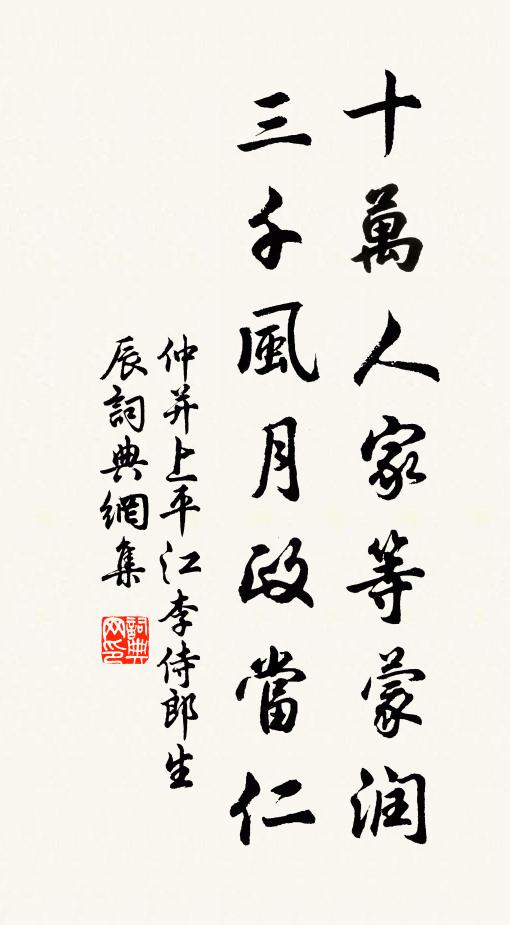 十萬人家等蒙润
三千風月政當仁
仲并上平江李侍郎生
辰詞典網集
詞典网印